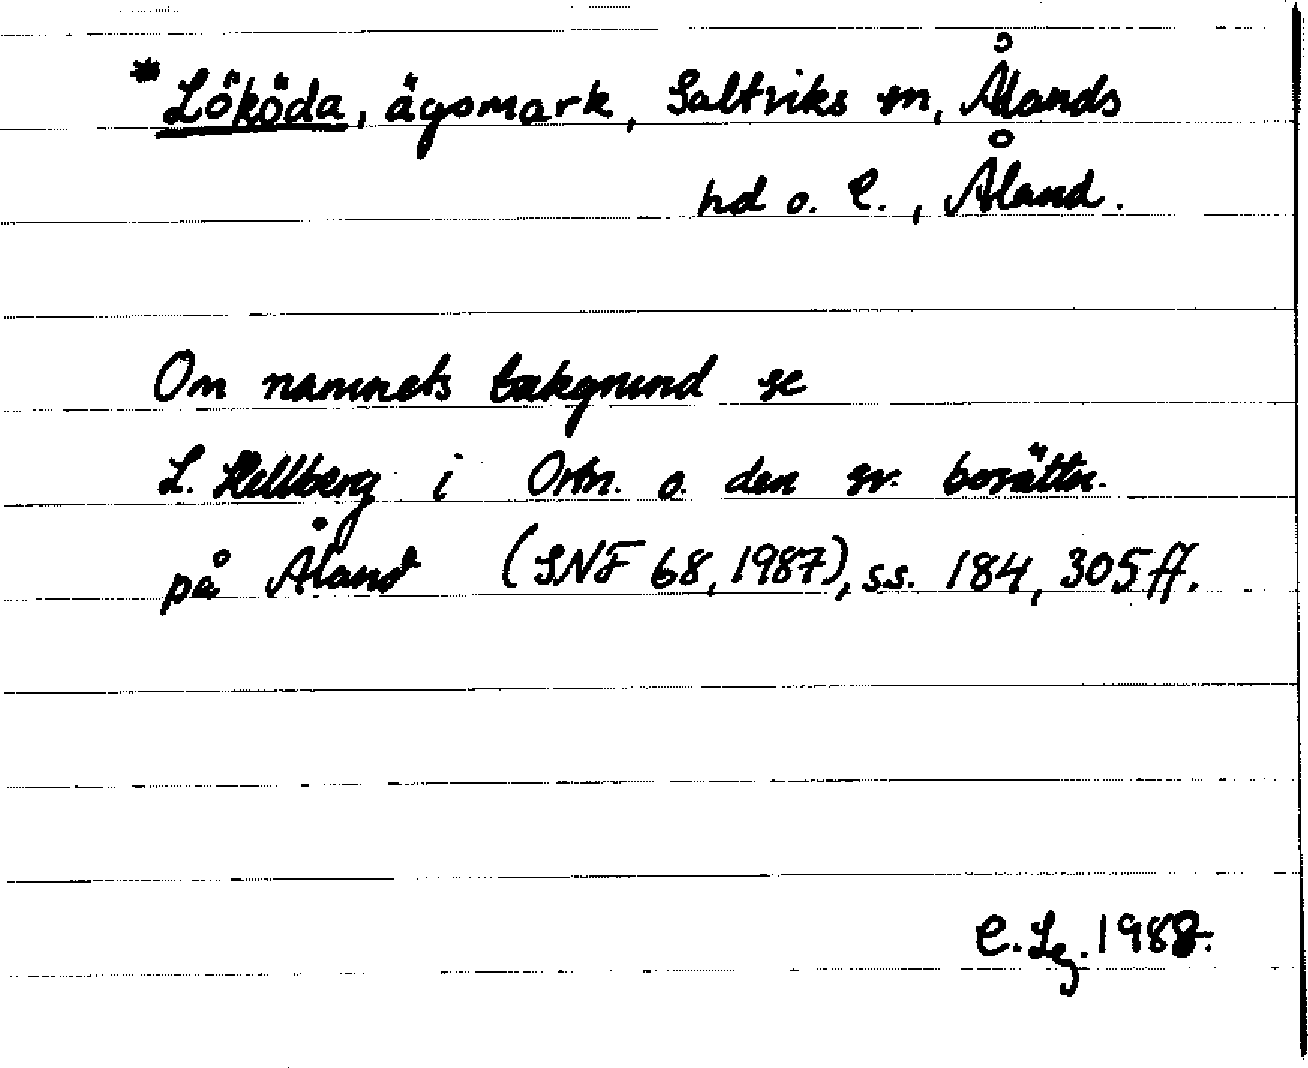 *Lököda, ägomark, Saltviks sn, Ålands
hd o. l., Åland.
Om namnets bakgrund se
L. Hellberg i Ortn. o. den sv. bosättn.
på Åland (SNF 68, 1987), ss. 184, 305ff.
C. Lg. 1988.